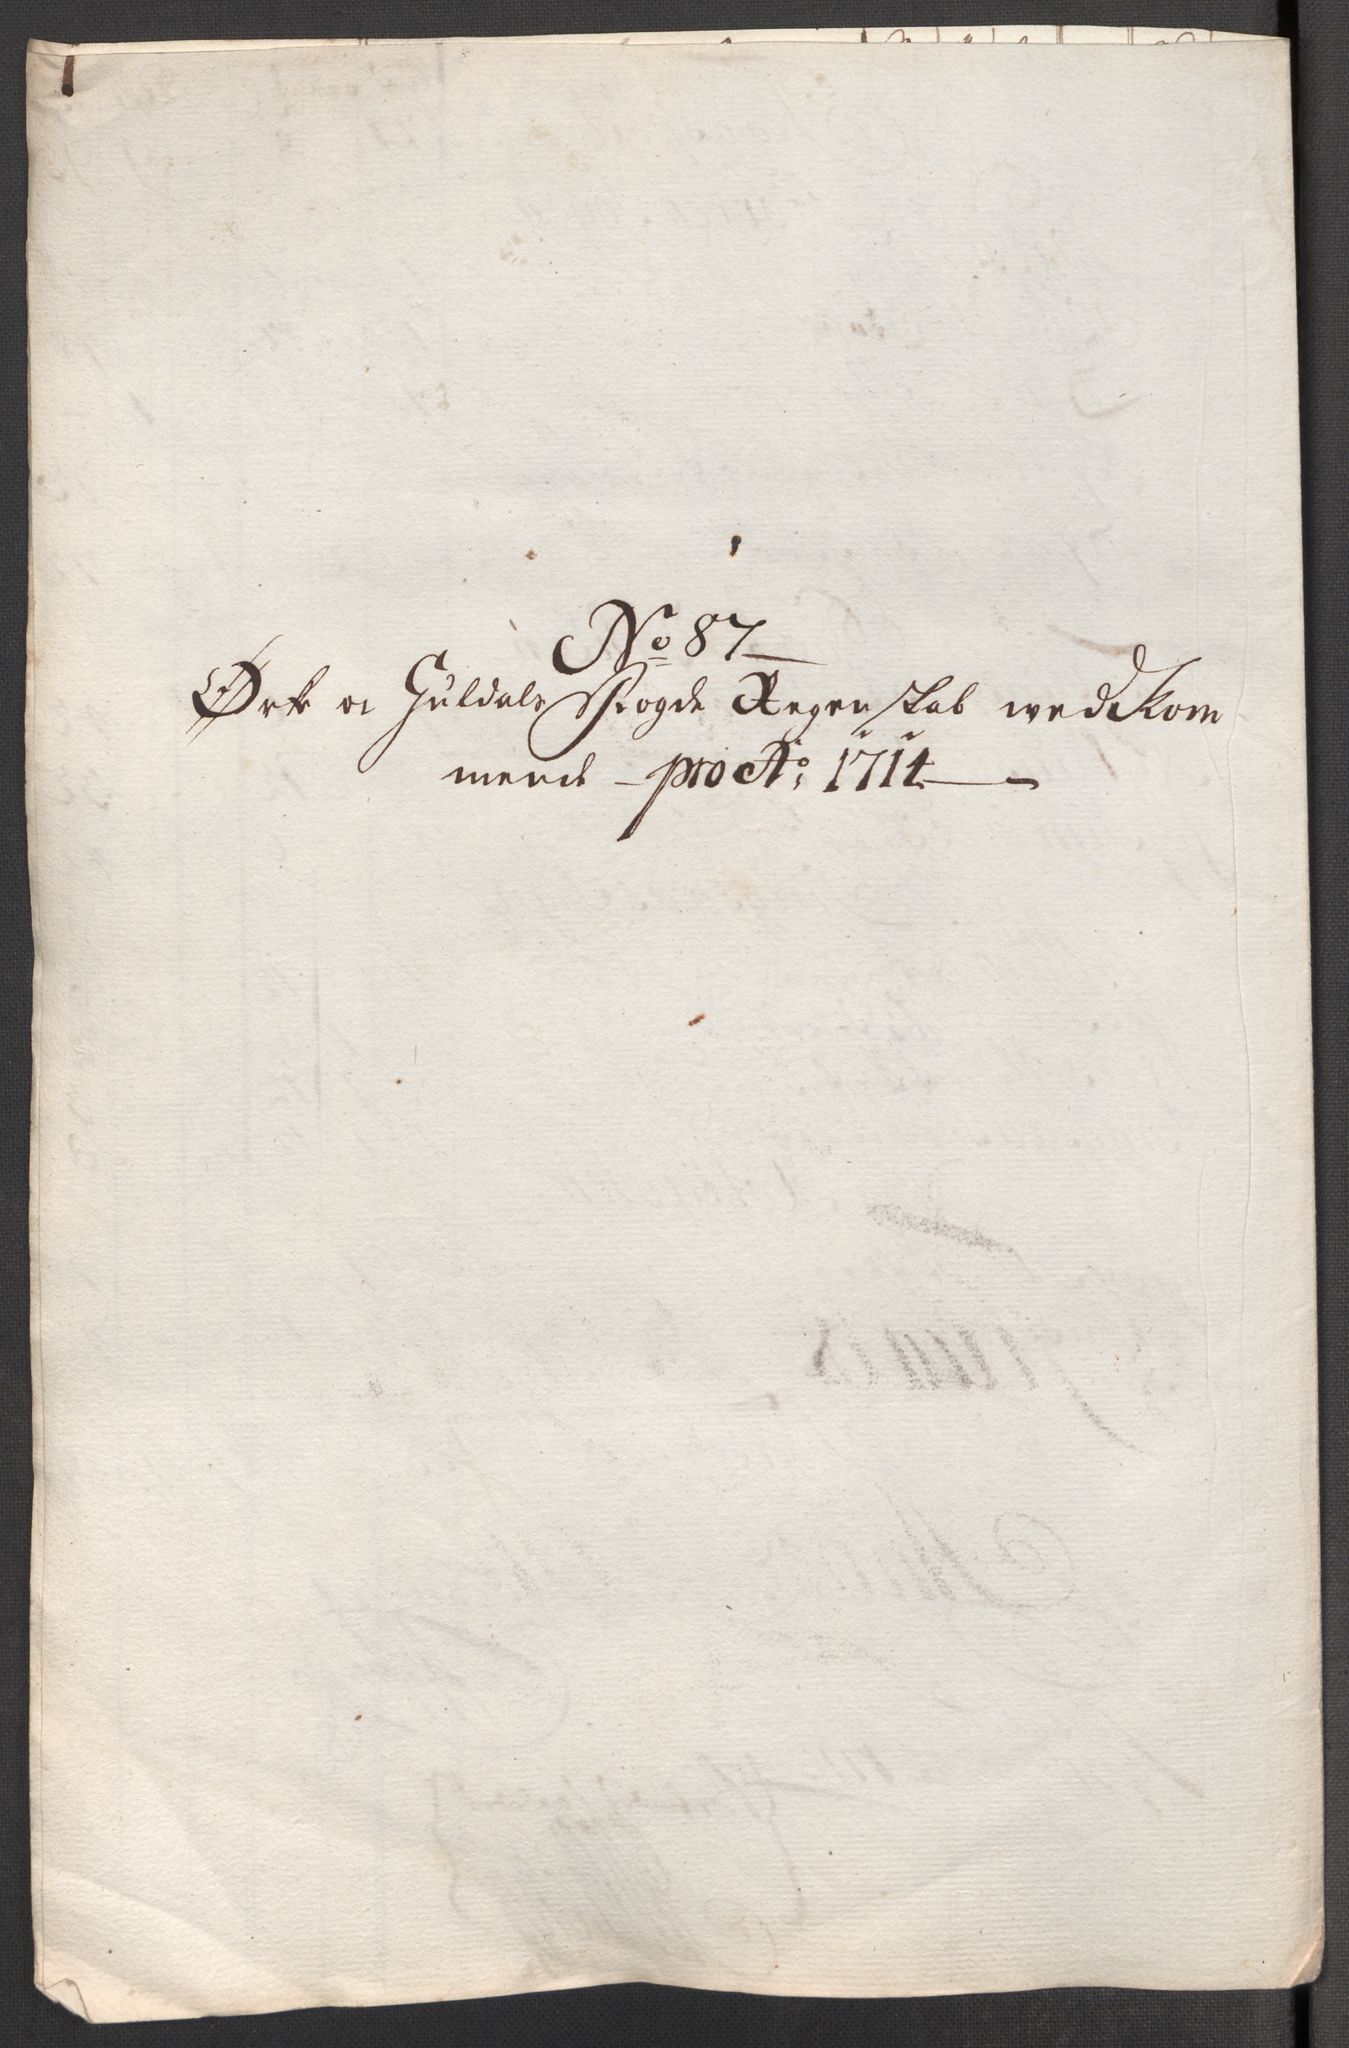 No 87
Ørk o Guldals Fogde Regenskab wedkom
mende pro Ao 1714